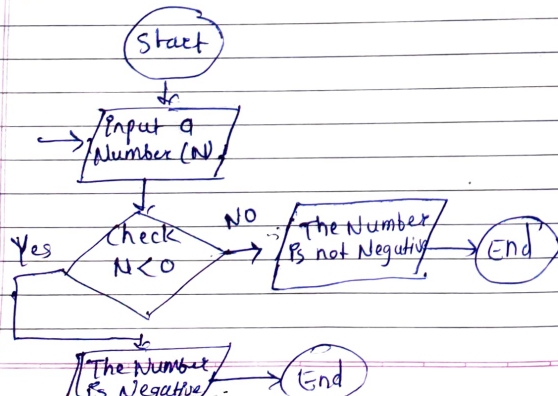 Start
Input a
Number (N)
Check
N<0
Yes
NO
The Number
is not Negative
End
The Number
is Negative
End